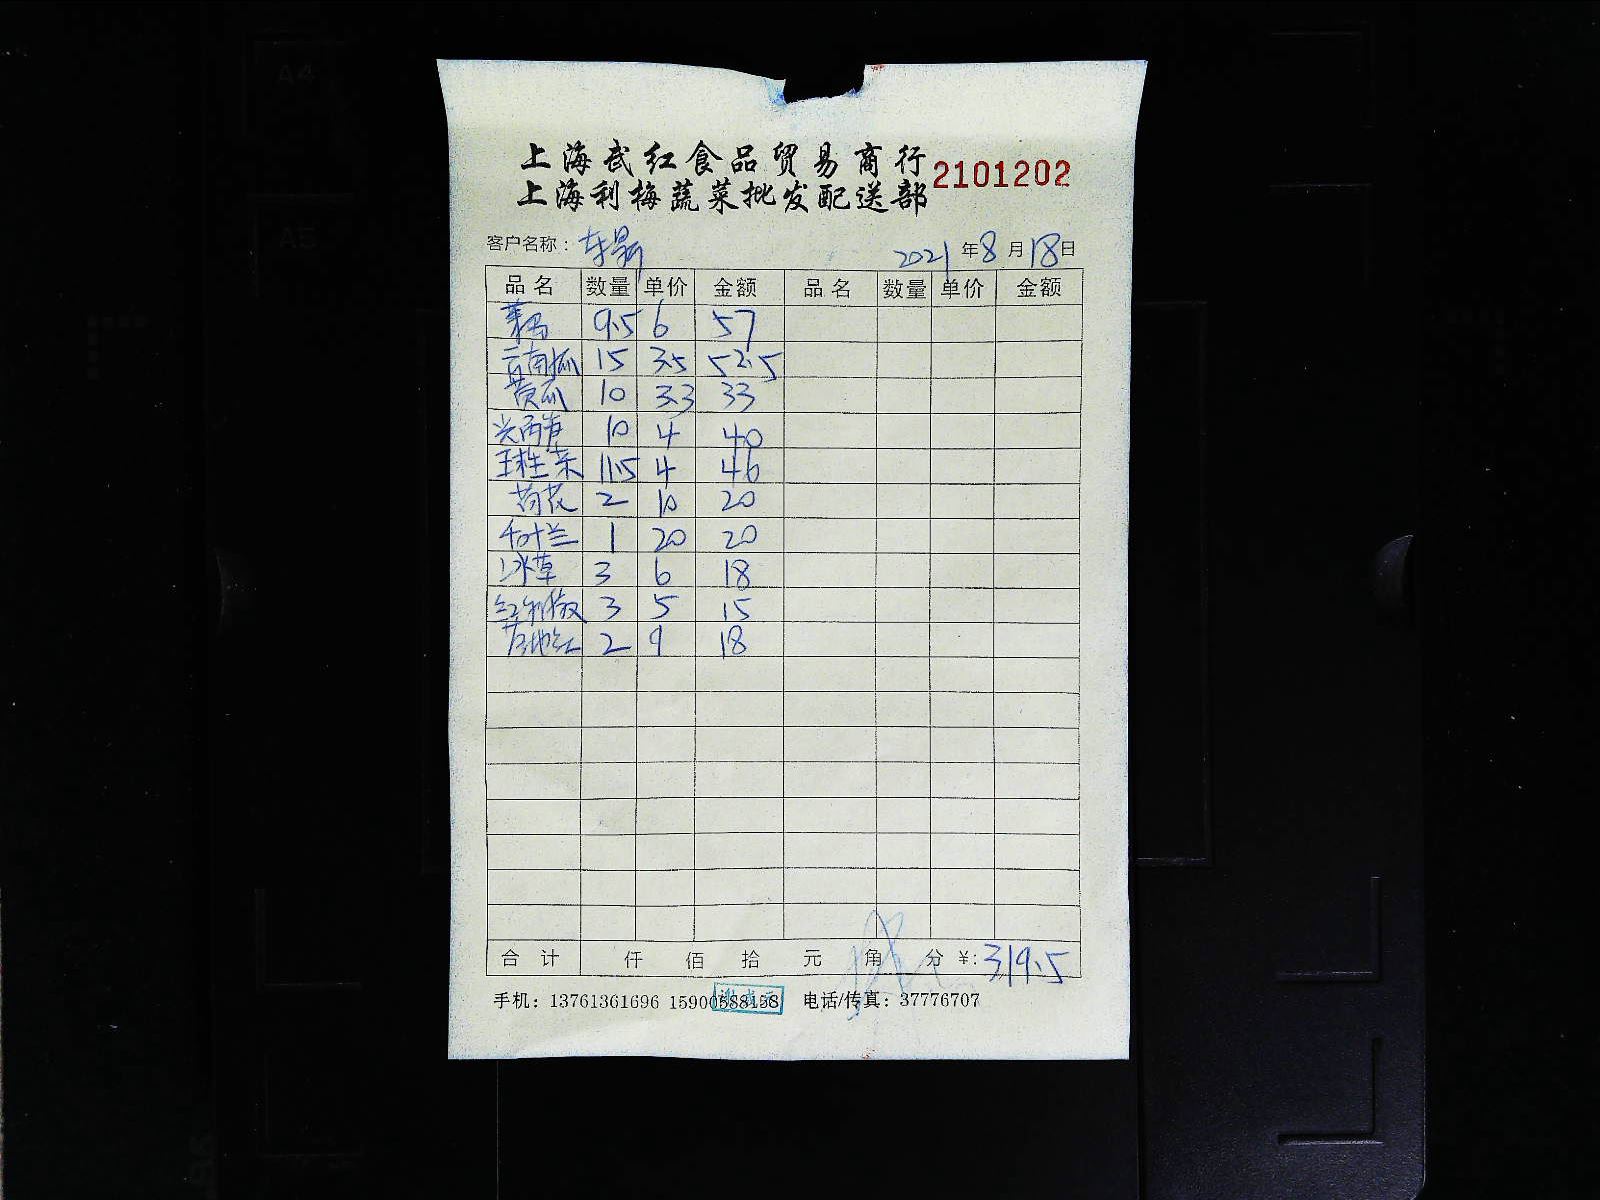 上海武红食品贸易商行
2101202
上海利梅蔬菜批发配送部
客户名称： 2021年8月18日
品名 数量 单价 金额 品名 数量 单价 金额
9.5 6 57
云南瓜 15 3.5 52.5
黄瓜 10 3.3 33
10 4 40
球生菜 11.5 4 46
荷花 2 10 20
千叶兰 1 20 20
冰草 3 6 18
3 5 15
2 9 18
合计 仟 佰 拾 元 角 分 ¥:319.5
手机：13761361696 15900588158 电话/传真：37776707